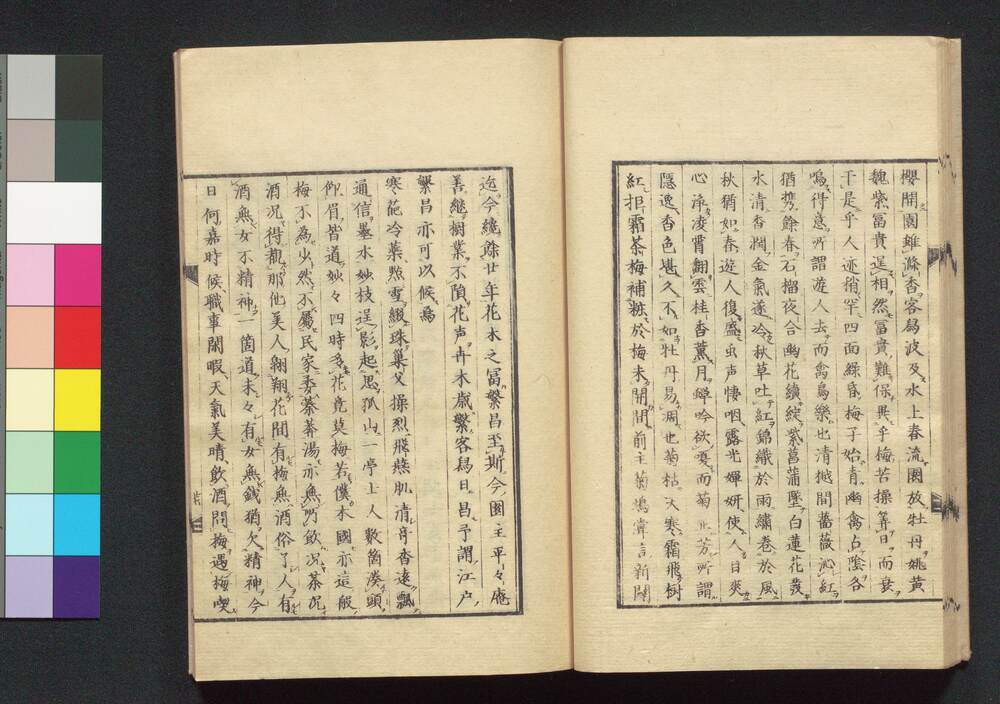 櫻開園雖滌香客爲波及水上春流園放牡丹姚黃
魏紫冨貴逞相然冨貴難保異乎梅苦操筭日而衰
于是乎人迹稍罕四面綠昏梅子始青幽禽占陰各
鳴得意所謂遊人去而禽鳥樂也清樾間薔薇沁紅
猶携餘春石榴夜合幽花續綻紫菖蒲墜白蓮花發
水清香潤金氣遂冷秋草吐紅錦織於雨繡卷於風
秋猶如春遊人復盛虫声悽咽露光嬋妍使人目爽
心淨凌霄翻雲桂香薰月蟬吟欲嗄而菊北芳所謂
隱逸香色堪久不如牡丹易凋也菊枯大寒霜飛樹
紅拒霜茶梅補粧於梅未開間前主菊塢賞言新開
迄今纔餘廿年花木之冨繁昌至斯今園主平々庵
善繼樹業不隕花声卉木歲繁客爲日昌予謂江戶
繁昌亦可以候焉
寒葩冷蘂點雪綴珠巢父操烈飛燕肌清奇香遠飄
通信墨水妙枝逞影起思孤山一亭上人數箇湊頭
仰眉皆道妙々四時多花竟莫梅若僕本國亦這般
梅不為少然不屬民家委蓁莽湯亦無所飲况茶况
酒况得觀那他美人翱翔花間有梅無酒俗了人有
酒無女不精神一箇道未々有女無錢猶欠精神今
日何嘉時候職事閑暇天氣美晴飲酒問梅遇梅喫